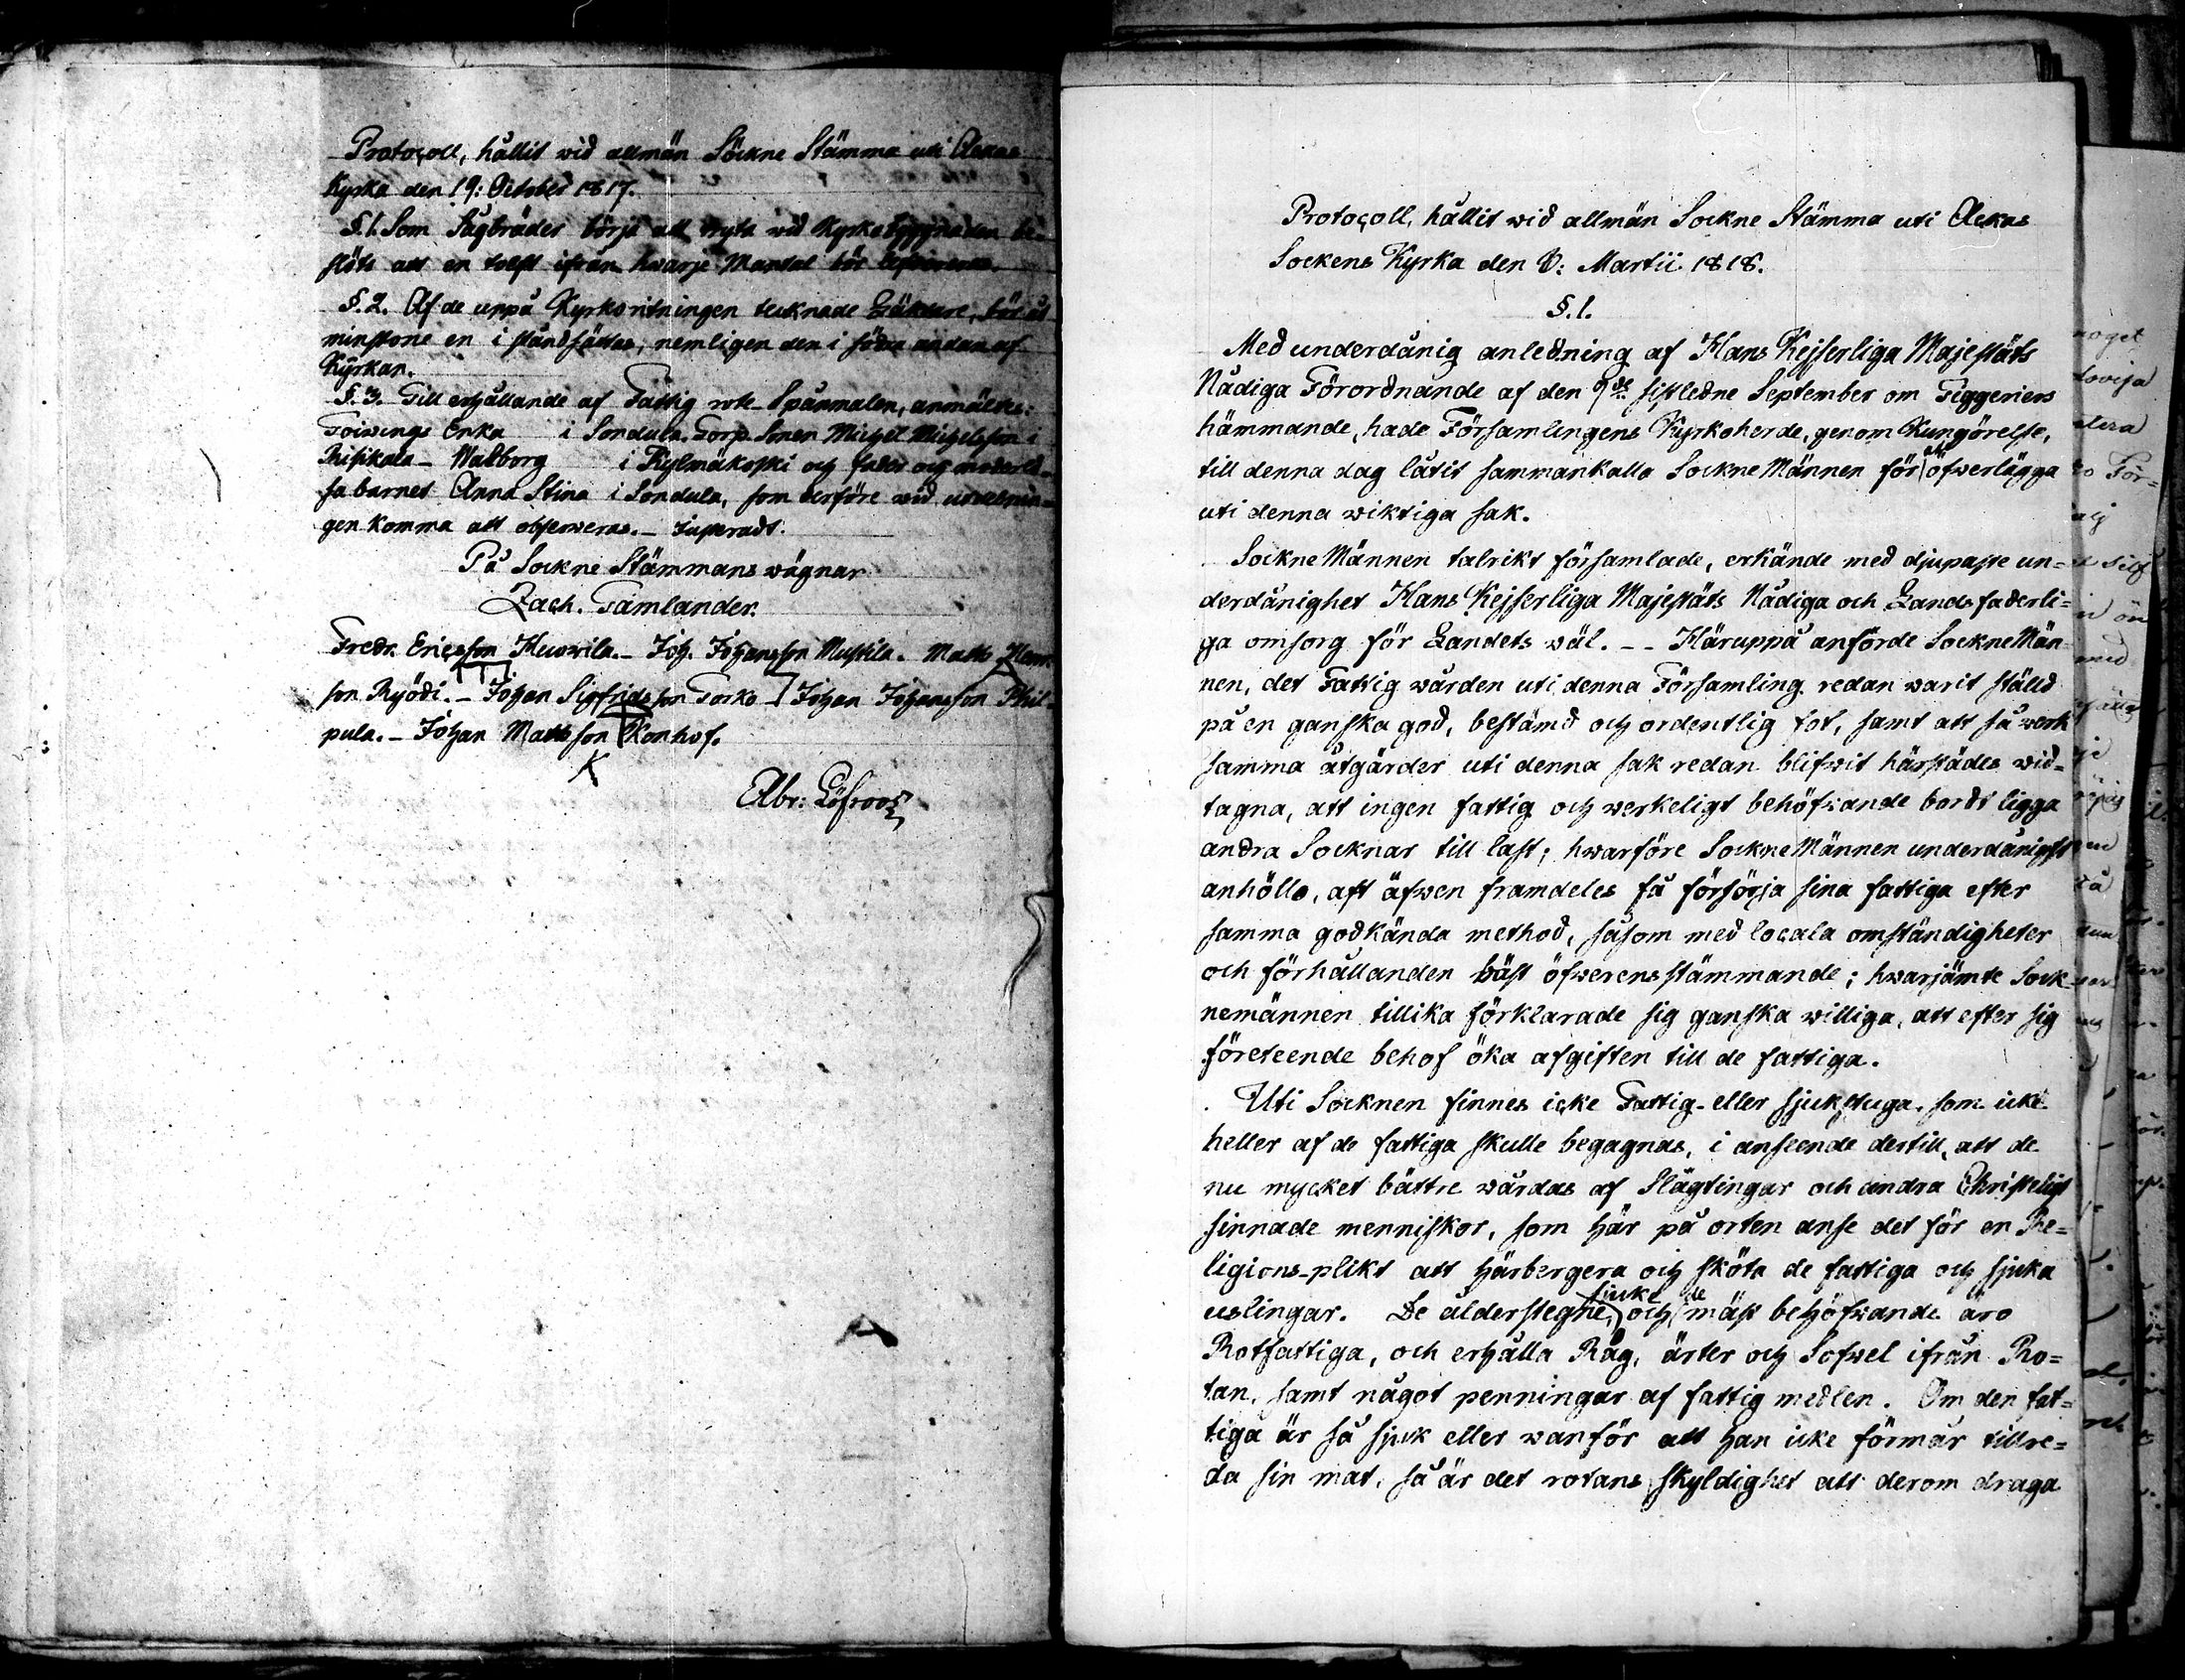 Protocoll, hållit wid allmän Sockne Stämma uti Ackas
Kyrka den 19: October 1817.
§.1. Som Sågbräder börja att tryta wid Kyrkobyggnaden be-
slöts att en tolft ifrån hwarje Mantal bör
§.2. Af de uppå Kyrkoritningen tecknade Läktare, bör åt
minstone en i ståndsättas, nemligen den i södra ändan af
Kyrkan.
§.3. Till erhållande af Fattig rote Spanmålen, anmältes:
Enka i Sondula. Torp Sonen Michel Michelsson i
Walborg i Kylmäkoski och fader och moderlö-
sa barnet Anna Stina i Sondula, som derföre wid utdelnin-
gen komma att observeras. - Justeradt.
På Sockne Stämmans wägnar
Zach. Tamlander.
Fredr. Ericsson Huowila. - Joh. Johansson Mustila. Matts Henr.
son Ryödi. - Johan Sigfridsson Torko - Johan Johansson Phil-
pula. - Johan Mattsson Konhof.
Abr: Löfroos
Protocoll, hållit wid allmän Sockne Stämma uti Ackas
Sockens Kyrka den 8: Martii 1818.
§.1.
Med underdånig anledning af Hans Kejserliga Majestäts
Nådiga Förordnande af den 9de sistledne September om Tiggeriers
hämmande, hade Församlingens Kyrkoherde, genom Kungörelse,
till denna dag låtit sammankalla Sockne Männen för att öfwerlägga
uti denna wiktiga sak.
Sockne Männen talrikt församlade, erkände med djupaste un=
derdånighet Hans Kejserliga Majestäts Nådiga och Landsfaderli=
ga omsorg för Landets wäl. - - Häruppå anförde Sockne Män
nen, det Fattig wården uti denna Församling redan warit ställd
på en ganska god, bestämd och ordentlig fot, samt att så werk
samma åtgärder uti denna sak redan blifwit härstädes wid=
tagna, att ingen fattig och werkeligt behöfwande bordt ligga
andra Socknar till last; hwarföre Sockne Männen underdånigst
anhöllo, att äfwen framdeles få försörja sina fattiga efter
samma godkända method, såsom med locala omständigheter
och förhållanden bäst öfwerensstämmande; hwarjämte Sock-
nemännen tillika förklarade sig ganska williga, att efter sig
företeende behof öka afgiften till de fattiga.
Uti Socknen finnes icke Fattig- eller sjukstuga, som icke
heller af de fattiga skulle begagnas, i anseende dertill, att de
nu mycket bättre wårdas af Slägtingar och andra Christeligt
sinnade menniskor, som här på orten anse det för en Re=
ligions-plikt att härbergera och sköta de fattiga och sjuka
uslingar. De ålderstegne, sjuke och de mäst behöfwande äro
Rotfattiga, och erhålla Råg, ärter och Sofwel ifrån Ro=
tan, samt något penningar af fattig medlen. Om den fat=
tiga är så sjuk eller wanför att han icke förmår tillre=
da sin mat, så är det rotans skyldighet att derom draga